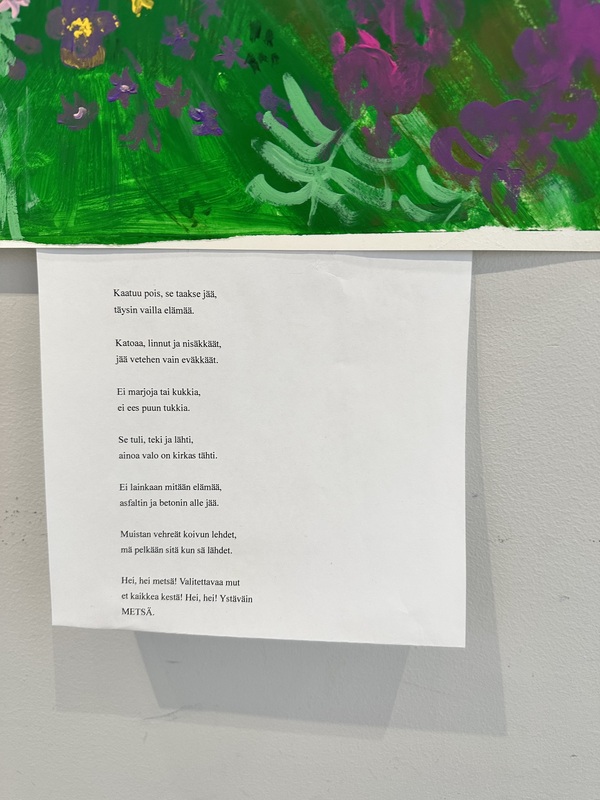 Kaatuu pois, se taakse jää,
täysin vailla elämää.
Katoaa, linnut ja nisäkkäät,
jää vetehen vain eväkkäät.
Ei marjoja tai kukkia,
ei ees puun tukkia.
Se tuli, teki ja lähti,
ainoa valo on kirkas tähti.
Ei lainkaan mitään elämää,
asfaltin ja betonin alle jää.
Muistan vehreät koivun lehdet,
mä pelkään sitä kun sä lähdet.
Hei, hei metsä! Valitettavaa mut
et kaikkea kestä! Hei, hei! Ystäväin
METSÄ.